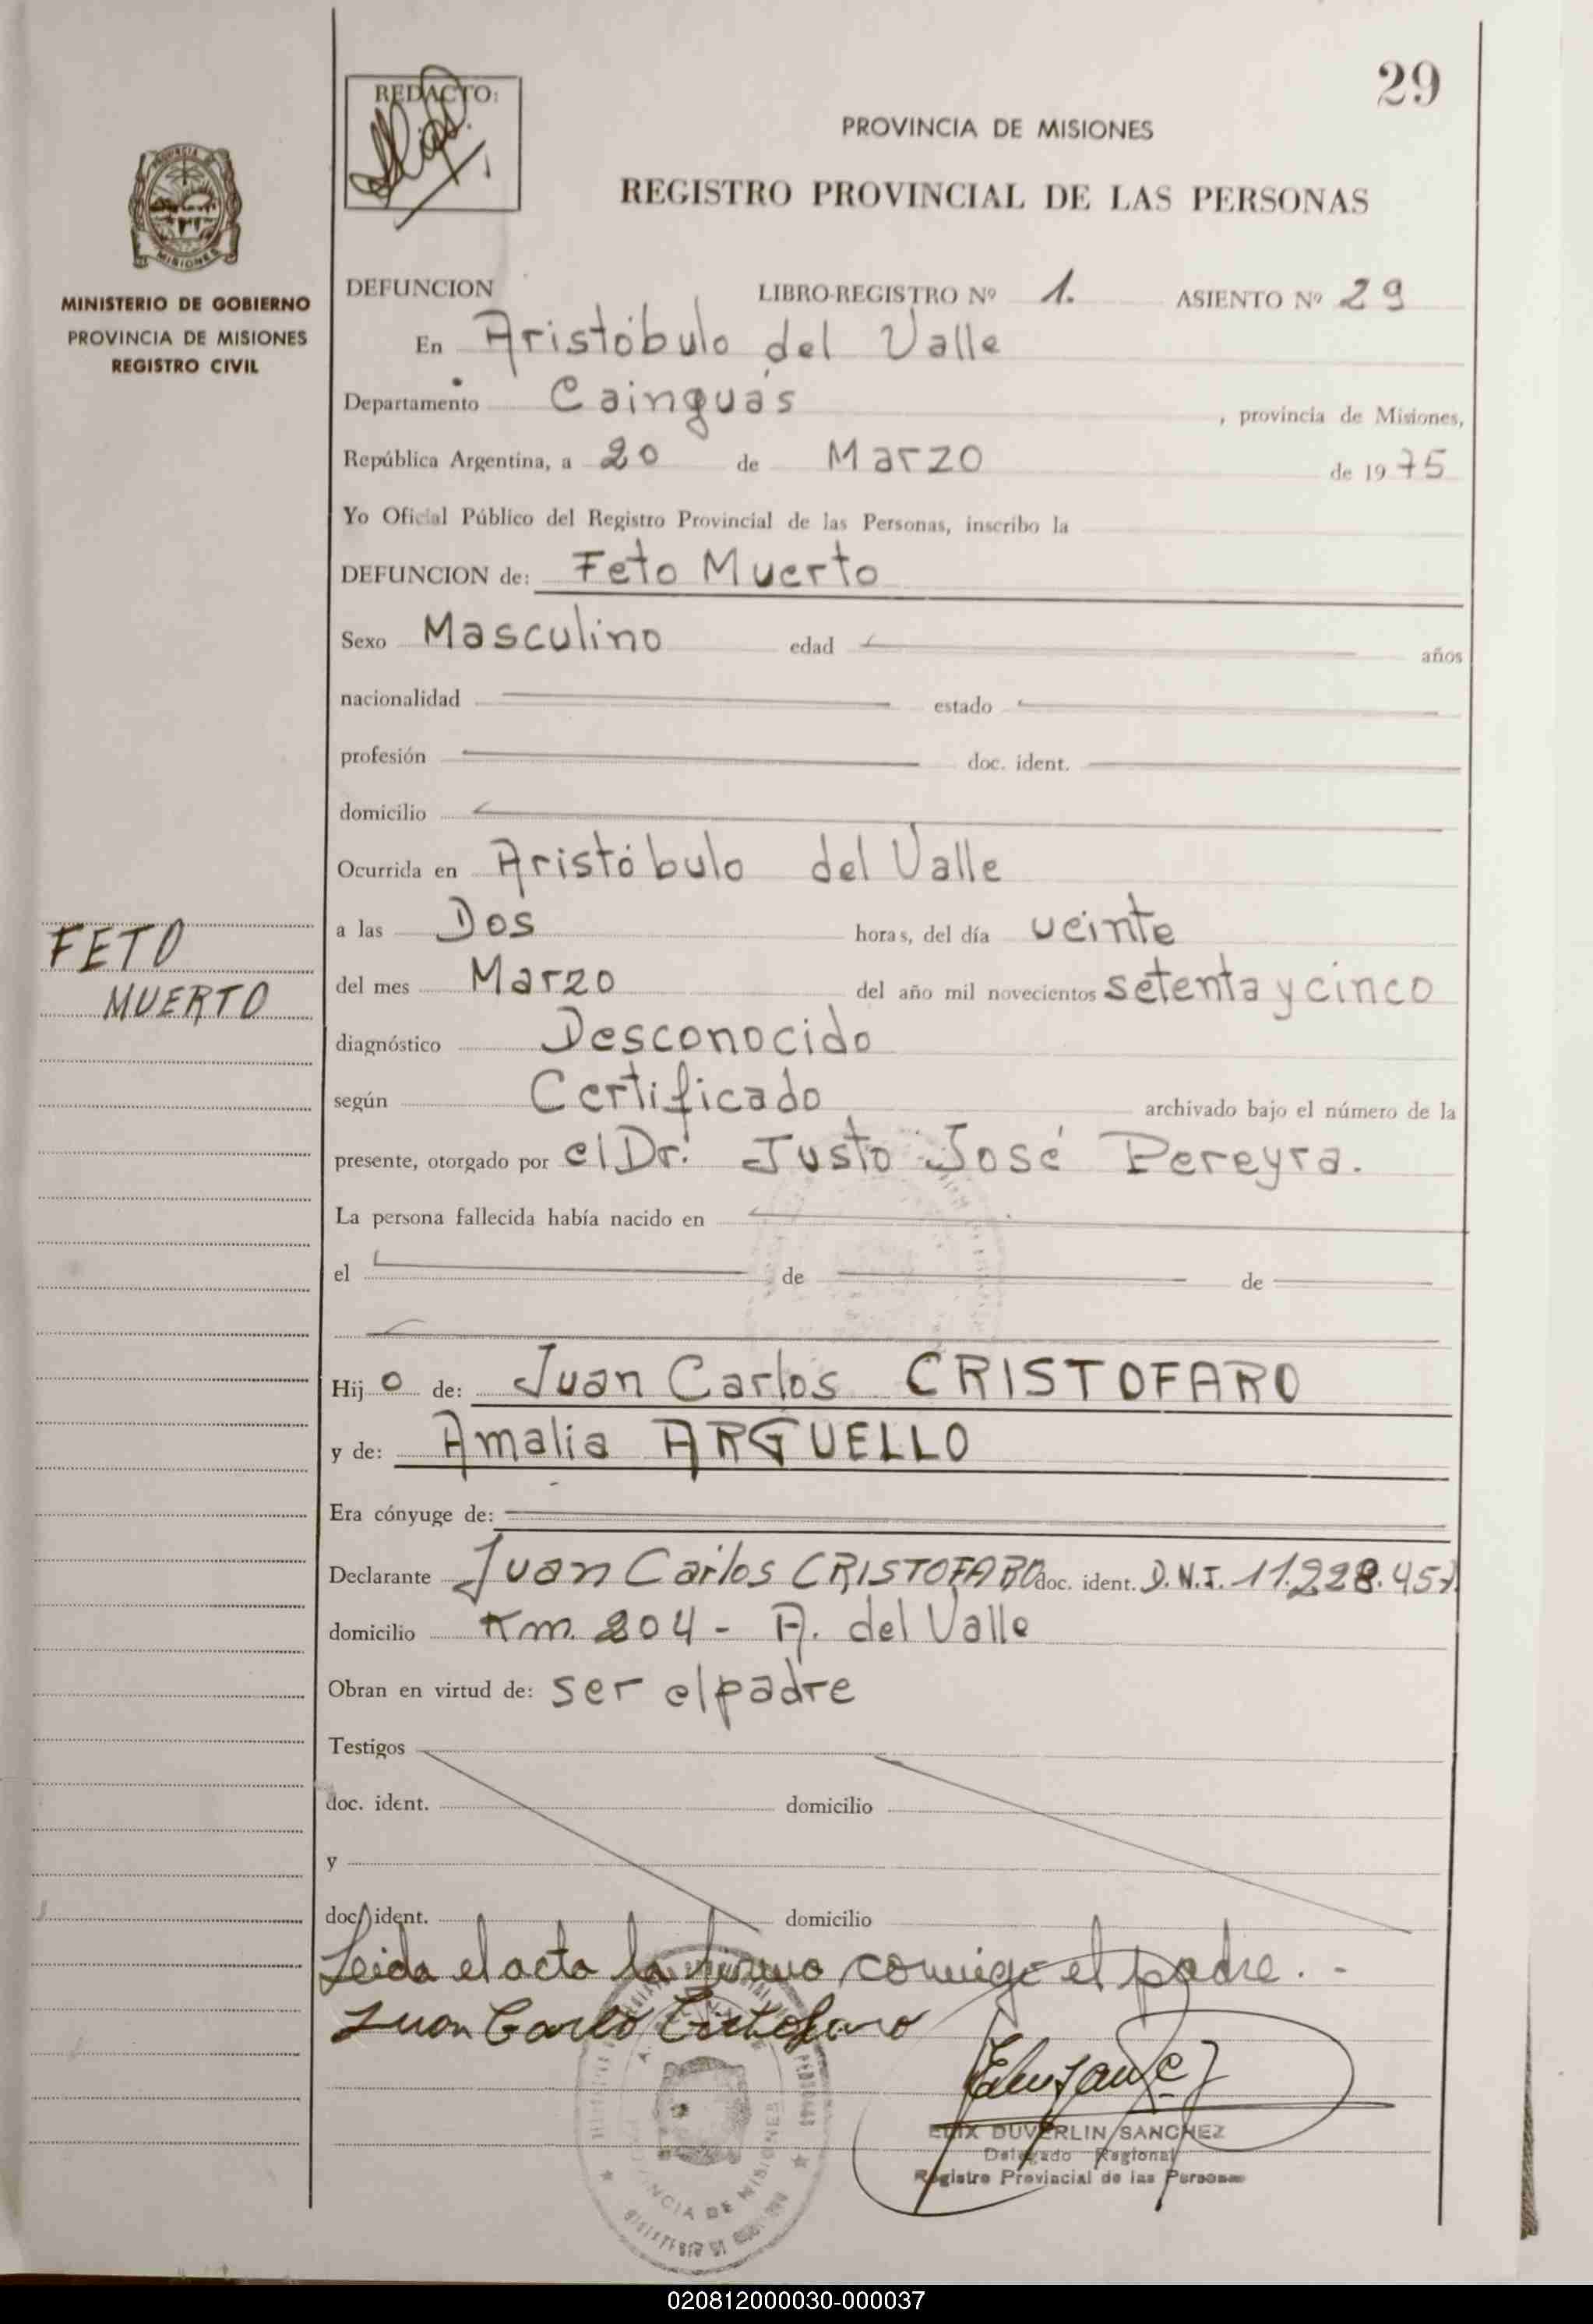 29
REDACTO:
PROVINCIA DE MISIONES
REGISTRO PROVINCIAL DE LAS PERSONAS
MINISTERIO DE GOBIERNO
PROVINCIA DE MISIONES
REGISTRO CIVIL
DEFUNCION LIBRO-REGISTRO Nº 1. ASIENTO Nº 29
En Aristóbulo del Valle
Departamento Cainguás, provincia de Misiones,
República Argentina, a 20 de Marzo de 1975
Yo Oficial Público del Registro Provincial de las Personas, inscribo la
DEFUNCION de: Feto Muerto
Sexo Masculino edad años
nacionalidad estado
profesión doc. ident.
domicilio
Ocurrida en Aristóbulo del Valle
FETO
MUERTO
a las Dos horas, del día veinte
del mes Marzo del año mil novecientos setenta y cinco
diagnóstico Desconocido
según Certificado archivado bajo el número de la
presente, otorgado por el Dr. Justo José Pereyra.
La persona fallecida había nacido en
el de de
Hijo de: Juan Carlos CRISTOFARO
y de: Amalia ARGUELLO
Era cónyuge de:
Declarante Juan Carlos CRISTOFARO doc. ident. D.N.I. 11.228.457
domicilio Km. 204 - A. del Valle
Obran en virtud de: ser el padre
Testigos
doc. ident. domicilio
y
doc. ident. domicilio
Leida el acta la firma conmigo el padre. -
Juan Carlo Cristofaro
DUVERLIN SANCHEZ
Delegado Regional
Registro Provincial de las Personas
PROVINCIA DE MISIONES
020812000030-000037